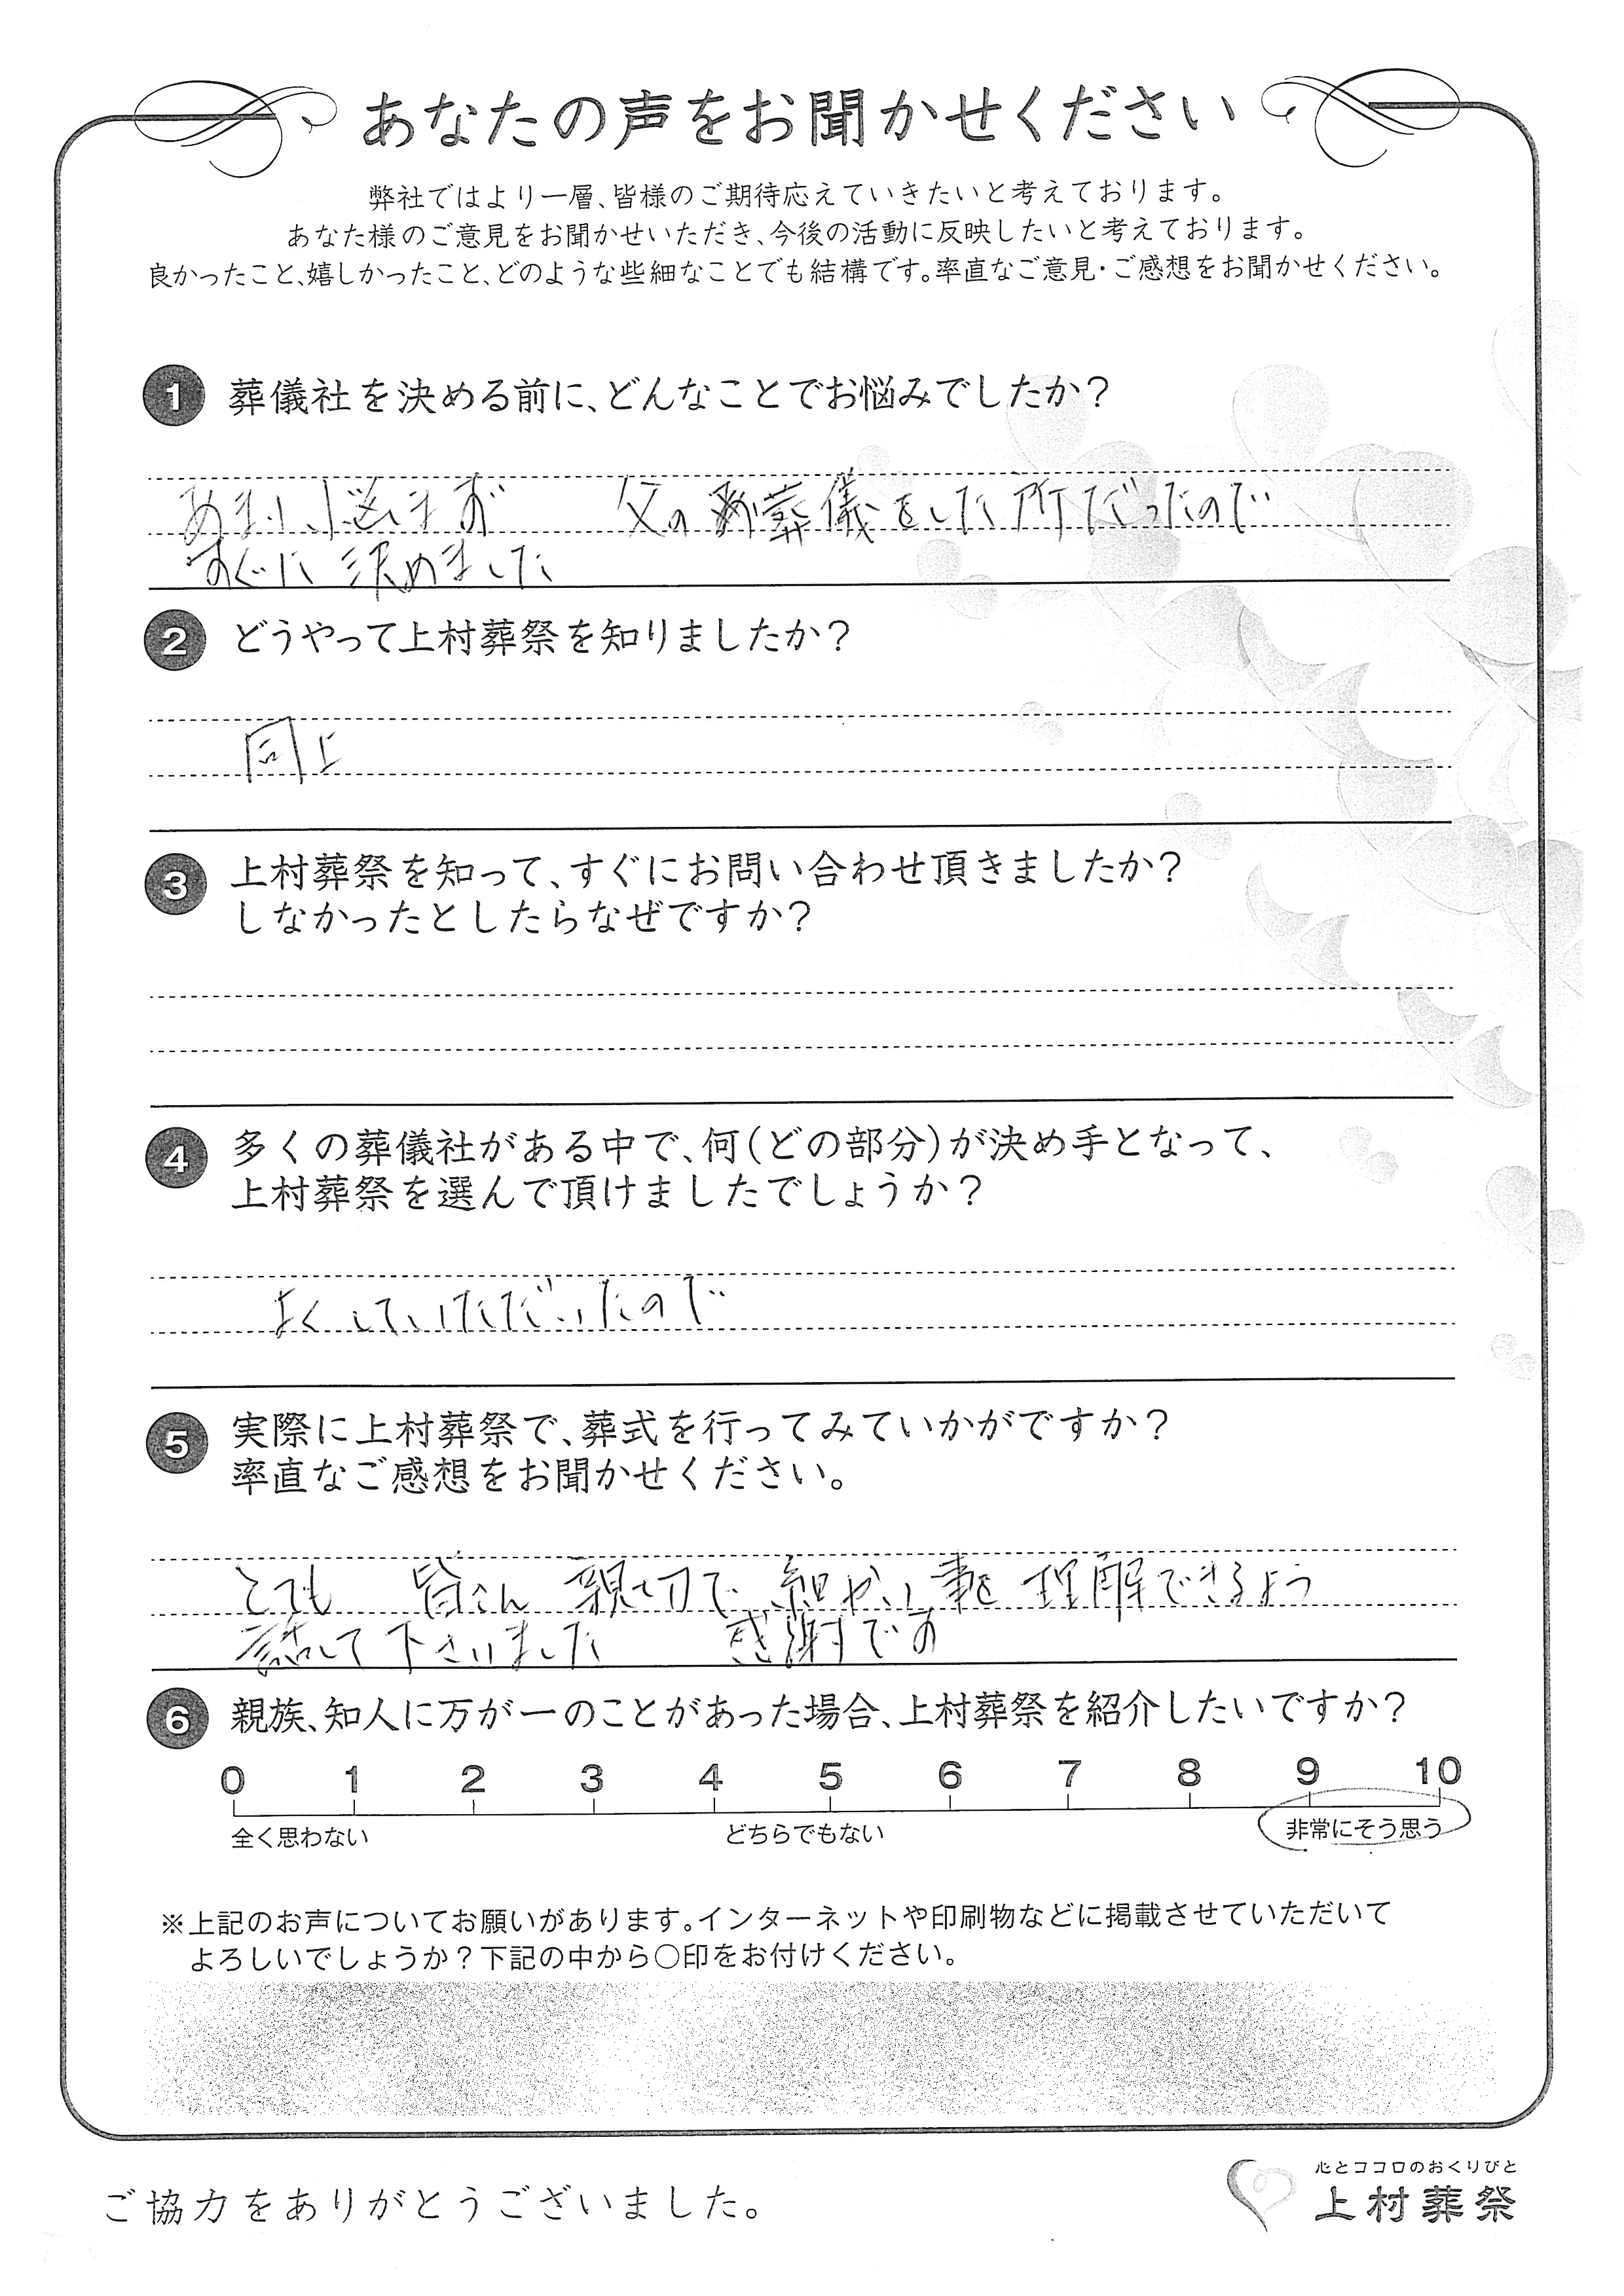 あなたの声をお聞かせください
弊社ではより一層、皆様のご期待応えていきたいと考えております。
あなた様のご意見をお聞かせいただき、今後の活動に反映したいと考えております。
良かったこと、嬉しかったこと、どのような些細なことでも結構です。率直なご意見・ご感想をお聞かせください。
1 葬儀社を決める前に、どんなことでお悩みでしたか?
あまり、悩まず 父の葬儀をした所だったので
すぐに決めました
2 どうやって上村葬祭を知りましたか?
同上
3 上村葬祭を知って、すぐにお問い合わせ頂きましたか?
しなかったとしたらなぜですか?
4 多くの葬儀社がある中で、何(どの部分)が決め手となって、
上村葬祭を選んで頂けましたでしょうか?
よくしていただいたので
5 実際に上村葬祭で、葬式を行ってみていかがですか?
率直なご感想をお聞かせください。
とても 皆さん 親切で 細かい事を 理解できるよう
話して下さいました 感謝です
6 親族、知人に万が一のことがあった場合、上村葬祭を紹介したいですか?
0 1 2 3 4 5 6 7 8 9 10
全く思わない どちらでもない 非常にそう思う
※上記のお声についてお願いがあります。インターネットや印刷物などに掲載させていただいて
よろしいでしょうか?下記の中から○印をお付けください。
ご協力をありがとうございました。
心とココロのおくりびと
上村葬祭